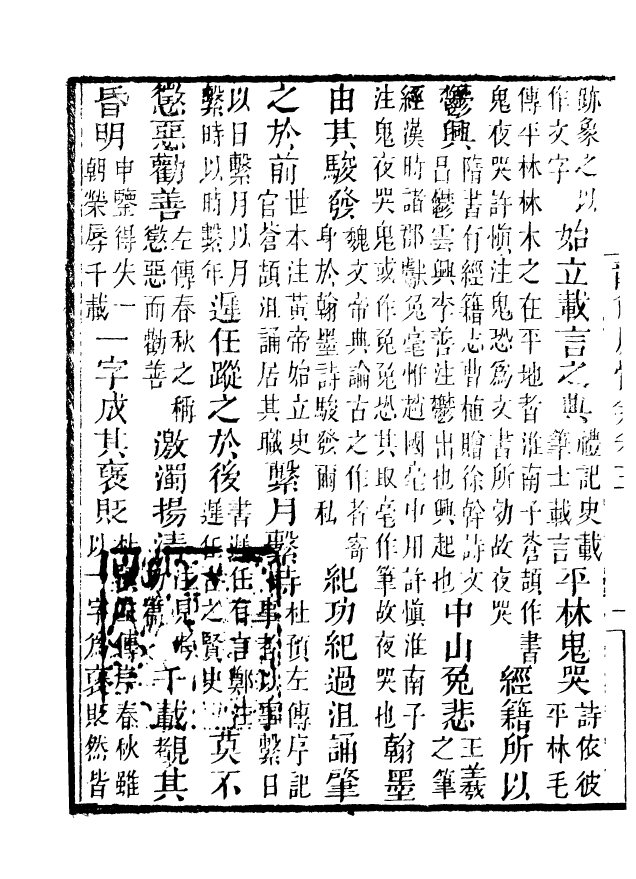 跡象之以作文字始立載言之典禮記史載筆士載言平林鬼哭詩依彼平林毛
傳平林林木之在平地者淮南子蒼頡作書鬼夜哭許愼注鬼恐爲文書所劾故夜哭經籍所以
鬱興隋書有經籍志曹植贈徐幹詩文吕鬱雲興李善注鬱出也興起也中山兔悲王羲之筆
經漢時諸郡獻兔毫惟趙國毫中用許愼淮南子注鬼夜哭鬼或作兔兔恐其取毫作筆故夜哭也翰墨
由其駿發魏文帝典論古之作者寄身於翰墨詩駿發爾私紀功紀過沮誦肇
之於前世本注黃帝始立史官蒼頡沮誦居其職繫月繫時杜預左傳序記事者以事繫日
以日繫月以月繫時以時繫年遲任蹤之於後書遲任有言鄭注遲任古之賢史莫不
懲惡勸善左傳春秋之稱懲惡而勸善激濁揚清注見千載觀其
昏明申鑒得失一朝榮辱千載一字成其褒貶杜預左傳序春秋雖以一字爲褒貶然皆